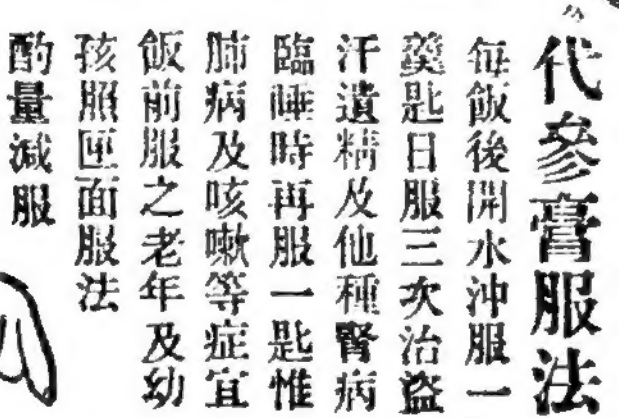 代參膏服法
每飯後開水沖服一
羹匙日服三次治盜
汗遺精及他種腎病
臨睡時再服一匙惟
肺病及咳嗽等症宜
飯前服之老年及幼
孩照匣面服法
酌量減服